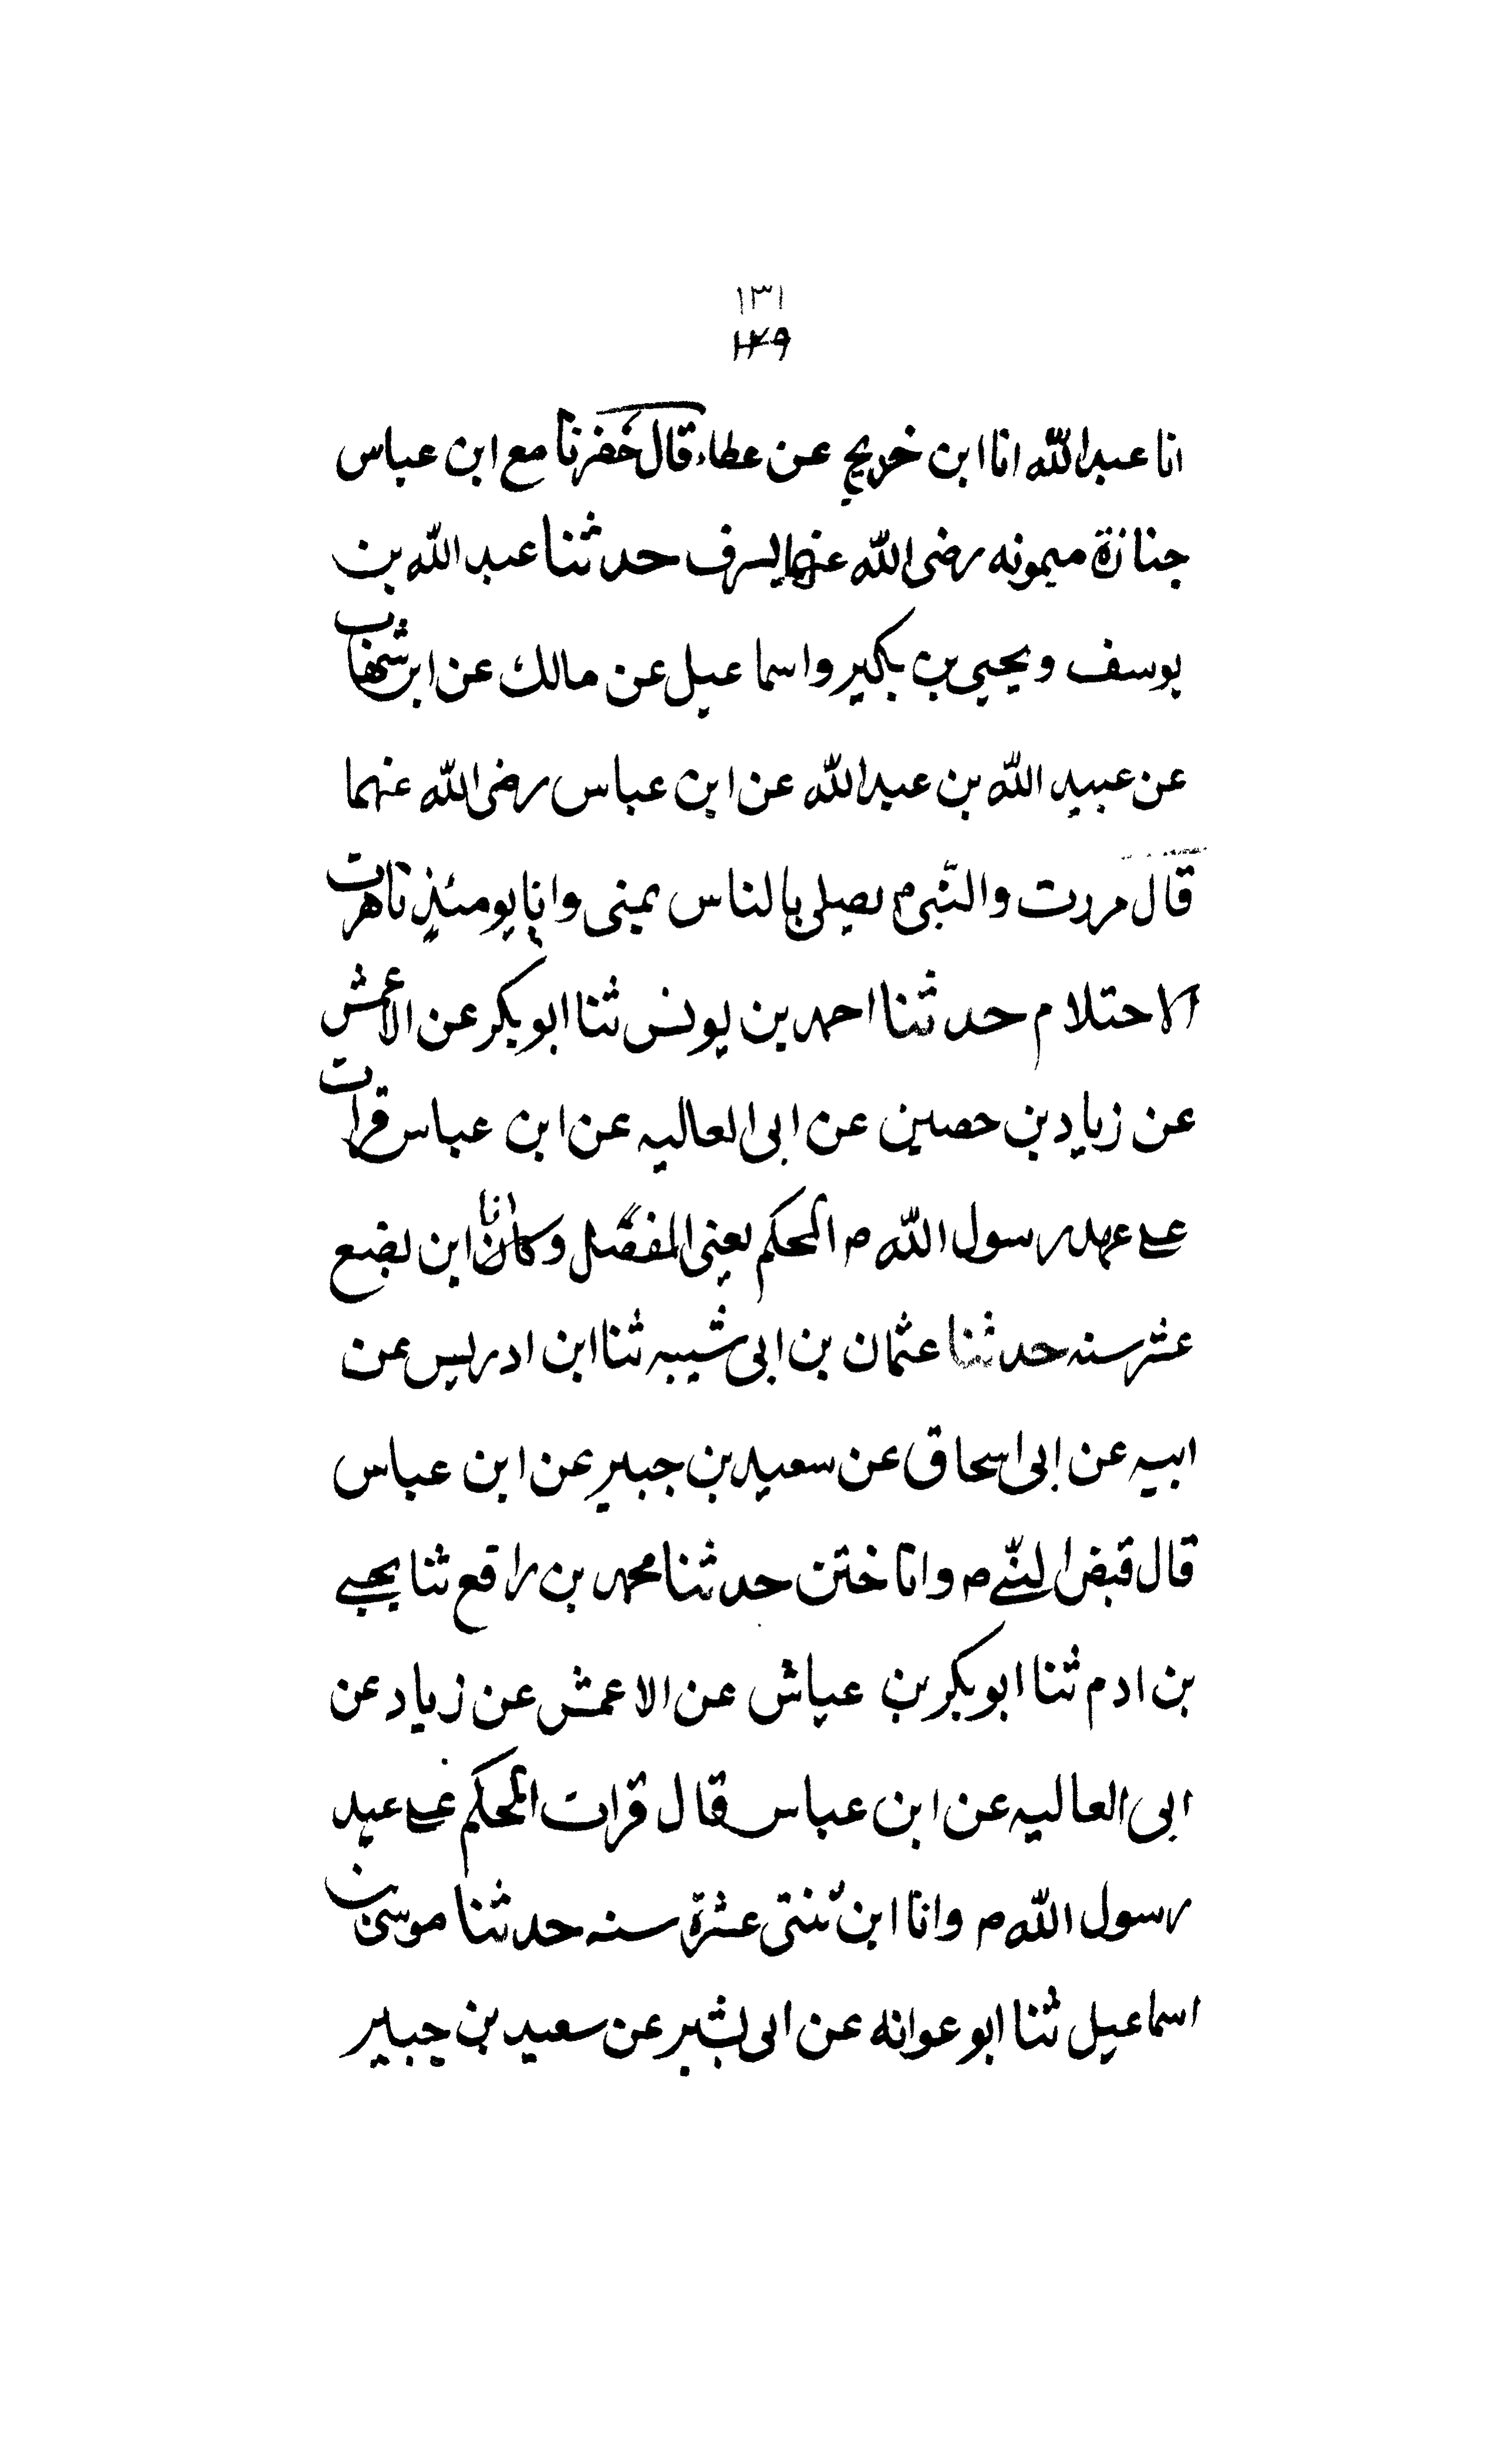 ١٣١
١٢٩
انا عبدالله انا ابن خريج عن عطاء قال خفرنا مع ابن عباس
جنازة ميمونه رضى الله عنهما بسرف حدثنا عبد الله بن
يوسف ويحيى بن بكير واسماعيل عن مالك عن ابن شهاب
عن عبيد الله بن عبدالله عن ابن عباس رضى الله عنهما
قال مررت والنبى م يصلى بالناس بمنى وانا يومئذ ناهزت
الاحتلام حدثنا احمد بن يونس ثنا ابو بكر عن الاعمش
عن زياد بن حصين عن ابى العاليه عن ابن عباس قرات
على عهد رسول الله م المحكم يعنى المفصل وكان انا ابن بضع
عشر سنه حدثنا عثمان بن ابى شيبه ثنا ابن ادريس عن
ابيه عن ابى اسحاق عن سعيد بن جبير عن ابن عباس
قال قبض النبى م وانا ختن حدثنا محمد بن رافع ثنا يحيى
بن ادم ثنا ابو بكر بن عياش عن الاعمش عن زياد عن
ابى العاليه عن ابن عباس قال قرات المحكم على عهد
رسول الله م وانا ابن ثنتى عشرة سنه حدثنا موسى بن
اسماعيل ثنا ابو عوانه عن ابى بشر عن سعيد بن جبير